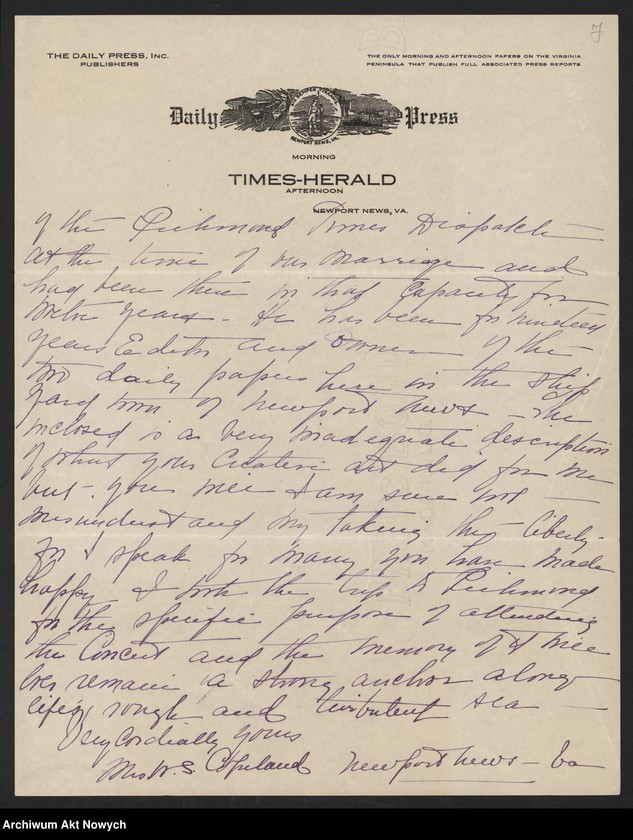 7
THE DAILY PRESS, INC.
PUBLISHERS
THE ONLY MORNING AND AFTERNOON PAPERS ON THE VIRGINIA
PENINSULA THAT PUBLISH FULL ASSOCIATED PRESS REPORTS
Daily Press
NEWPORT NEWS, VA.
MORNING
TIMES-HERALD
AFTERNOON
NEWPORT NEWS, VA.
of the Richmond Times Dispatch
at the time of our marriage and
had been there in that capacity for
twelve years - He has been for nineteen
years Editor and owner of the
two daily papers here in the ship
yard town of Newport News - The
inclosed is a very inadequate description
of what your Creative art did for me
but - you will I am sure not -
misunderstand my taking this liberty -
for I speak for many you have made
happy. I took the trip to Richmond
for the specific purpose of attending
the Concert and the memory of it will
ever remain a strong anchor along
life's rough and turbulent sea -
Very Cordially yours
Mrs W. S. Copeland Newport News - Va
Archiwum Akt Nowych